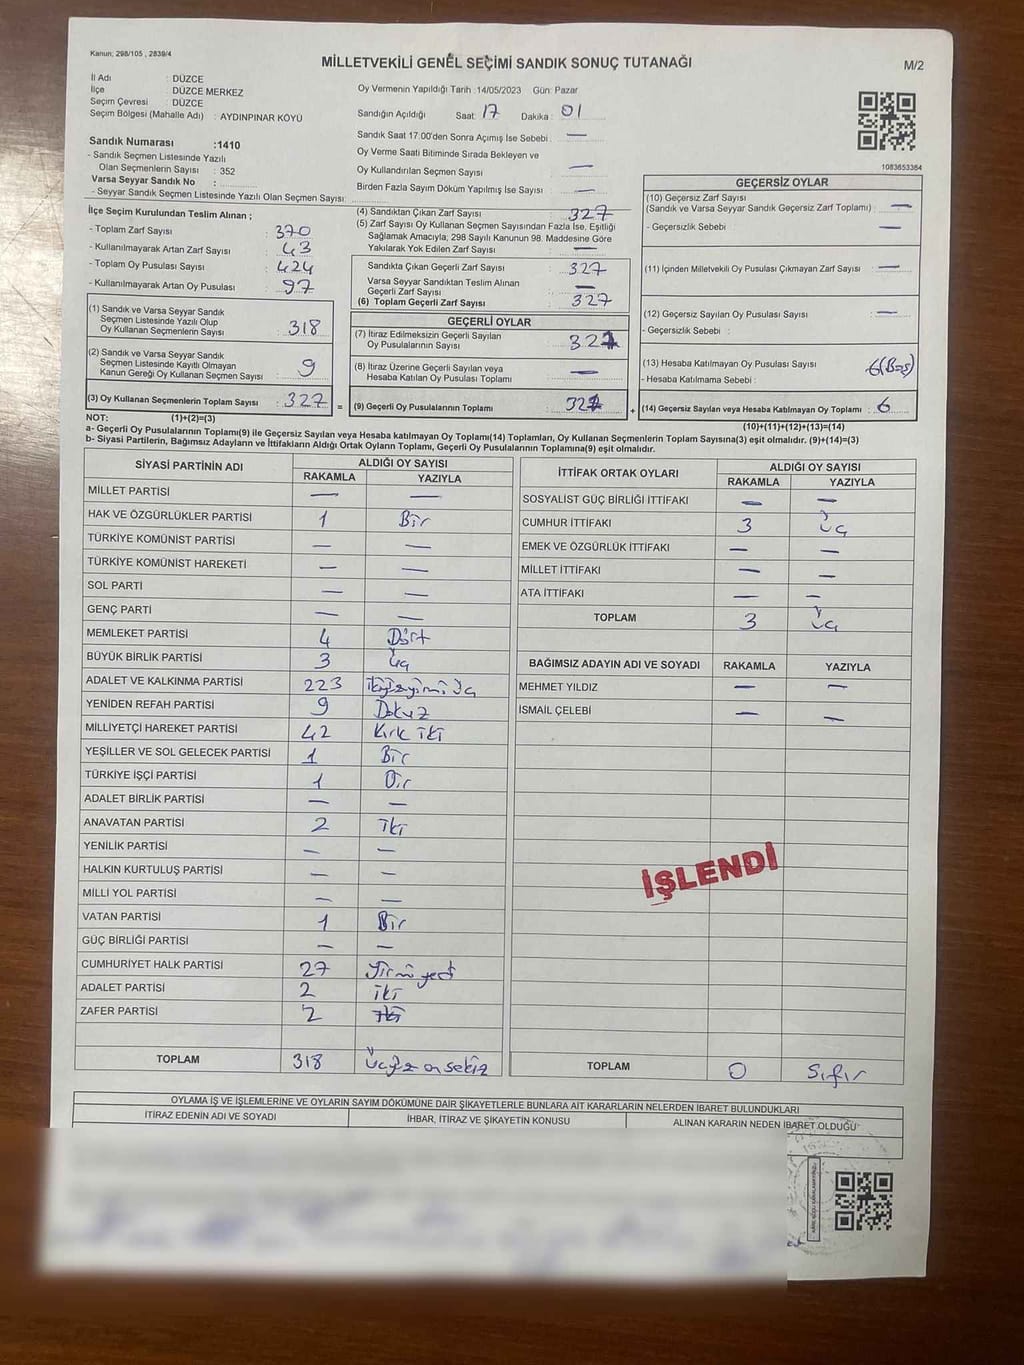 Kanun; 298/105 , 2839/4
MİLLETVEKİLİ GENEL SEÇİMİ SANDIK SONUÇ TUTANAĞI
M/2
İl Adı : DÜZCE
İlçe : DÜZCE MERKEZ
Seçim Çevresi : DÜZCE
Seçim Bölgesi (Mahalle Adı) : AYDINPINAR KÖYÜ
Oy Vermenin Yapıldığı Tarih :14/05/2023 Gün: Pazar
Sandığın Açıldığı Saat: 17 Dakika : 01
Sandık Saat 17.00'den Sonra Açımış İse Sebebi : —
Oy Verme Saati Bitiminde Sırada Bekleyen ve
Oy Kullandırılan Seçmen Sayısı : —
Birden Fazla Sayım Döküm Yapılmış İse Sayısı : —
1083653384
Sandık Numarası :1410
- Sandık Seçmen Listesinde Yazılı
Olan Seçmenlerin Sayısı : 352
Varsa Seyyar Sandık No :
- Seyyar Sandık Seçmen Listesinde Yazılı Olan Seçmen Sayısı:
İlçe Seçim Kurulundan Teslim Alınan ;
- Toplam Zarf Sayısı : 370
- Kullanılmayarak Artan Zarf Sayısı : 43
- Toplam Oy Pusulası Sayısı : 424
- Kullanılmayarak Artan Oy Pusulası : 97
(1) Sandık ve Varsa Seyyar Sandık
Seçmen Listesinde Yazılı Olup
Oy Kullanan Seçmenlerin Sayısı : 318
(2) Sandık ve Varsa Seyyar Sandık
Seçmen Listesinde Kayıtlı Olmayan
Kanun Gereği Oy Kullanan Seçmen Sayısı : 9
(3) Oy Kullanan Seçmenlerin Toplam Sayısı : 327
(4) Sandıktan Çıkan Zarf Sayısı : 327
(5) Zarf Sayısı Oy Kullanan Seçmen Sayısından Fazla İse, Eşitliği
Sağlamak Amacıyla; 298 Sayılı Kanunun 98. Maddesine Göre
Yakılarak Yok Edilen Zarf Sayısı : —
Sandıkta Çıkan Geçerli Zarf Sayısı : 327
Varsa Seyyar Sandıktan Teslim Alınan
Geçerli Zarf Sayısı : —
(6) Toplam Geçerli Zarf Sayısı : 327
GEÇERLİ OYLAR
(7) İtiraz Edilmeksizin Geçerli Sayılan
Oy Pusulalarının Sayısı :
(8) İtiraz Üzerine Geçerli Sayılan veya
Hesaba Katılan Oy Pusulası Toplamı : —
= (9) Geçerli Oy Pusulalarının Toplamı :
GEÇERSİZ OYLAR
(10) Geçersiz Zarf Sayısı
(Sandık ve Varsa Seyyar Sandık Geçersiz Zarf Toplamı) : —
- Geçersizlik Sebebi : —
(11) İçinden Milletvekili Oy Pusulası Çıkmayan Zarf Sayısı : —
(12) Geçersiz Sayılan Oy Pusulası Sayısı : —
- Geçersizlik Sebebi :
(13) Hesaba Katılmayan Oy Pusulası Sayısı : 6
- Hesaba Katılmama Sebebi :
+ (14) Geçersiz Sayılan veya Hesaba Katılmayan Oy Toplamı : 6
NOT: (1)+(2)=(3)
(10)+(11)+(12)+(13)=(14)
a- Geçerli Oy Pusulalarının Toplamı(9) ile Geçersiz Sayılan veya Hesaba katılmayan Oy Toplamı(14) Toplamları, Oy Kullanan Seçmenlerin Toplam Sayısına(3) eşit olmalıdır. (9)+(14)=(3)
b- Siyasi Partilerin, Bağımsız Adayların ve İttifakların Aldığı Ortak Oyların Toplamı, Geçerli Oy Pusulalarının Toplamına(9) eşit olmalıdır.
SİYASİ PARTİNİN ADI ALDIĞI OY SAYISI
RAKAMLA YAZIYLA
MİLLET PARTİSİ — —
HAK VE ÖZGÜRLÜKLER PARTİSİ 1 Bir
TÜRKİYE KOMÜNİST PARTİSİ — —
TÜRKİYE KOMÜNİST HAREKETİ — —
SOL PARTİ — —
GENÇ PARTİ — —
MEMLEKET PARTİSİ 4 Dört
BÜYÜK BİRLİK PARTİSİ 3 Üç
ADALET VE KALKINMA PARTİSİ 223
YENİDEN REFAH PARTİSİ 9 Dokuz
MİLLİYETÇİ HAREKET PARTİSİ 42 Kırk iki
YEŞİLLER VE SOL GELECEK PARTİSİ 1 Bir
TÜRKİYE İŞÇİ PARTİSİ 1 Bir
ADALET BİRLİK PARTİSİ — —
ANAVATAN PARTİSİ 2 İki
YENİLİK PARTİSİ — —
HALKIN KURTULUŞ PARTİSİ — —
MİLLİ YOL PARTİSİ — —
VATAN PARTİSİ 1 Bir
GÜÇ BİRLİĞİ PARTİSİ — —
CUMHURİYET HALK PARTİSİ 27 Yirmi yedi
ADALET PARTİSİ 2 iki
ZAFER PARTİSİ 2 iki
TOPLAM 318 Üçyüz onsekiz
İTTİFAK ORTAK OYLARI ALDIĞI OY SAYISI
RAKAMLA YAZIYLA
SOSYALİST GÜÇ BİRLİĞİ İTTİFAKI — —
CUMHUR İTTİFAKI 3 Üç
EMEK VE ÖZGÜRLÜK İTTİFAKI — —
MİLLET İTTİFAKI — —
ATA İTTİFAKI — —
TOPLAM 3 Üç
BAĞIMSIZ ADAYIN ADI VE SOYADI RAKAMLA YAZIYLA
MEHMET YILDIZ — —
İSMAİL ÇELEBİ — —
İŞLENDİ
TOPLAM 0 Sıfır
OYLAMA İŞ VE İŞLEMLERİNE VE OYLARIN SAYIM DÖKÜMÜNE DAİR ŞİKAYETLERLE BUNLARA AİT KARARLARIN NELERDEN İBARET BULUNDUKLARI
İTİRAZ EDENİN ADI VE SOYADI İHBAR, İTİRAZ VE ŞİKAYETİN KONUSU ALINAN KARARIN NEDEN İBARET OLDUĞU